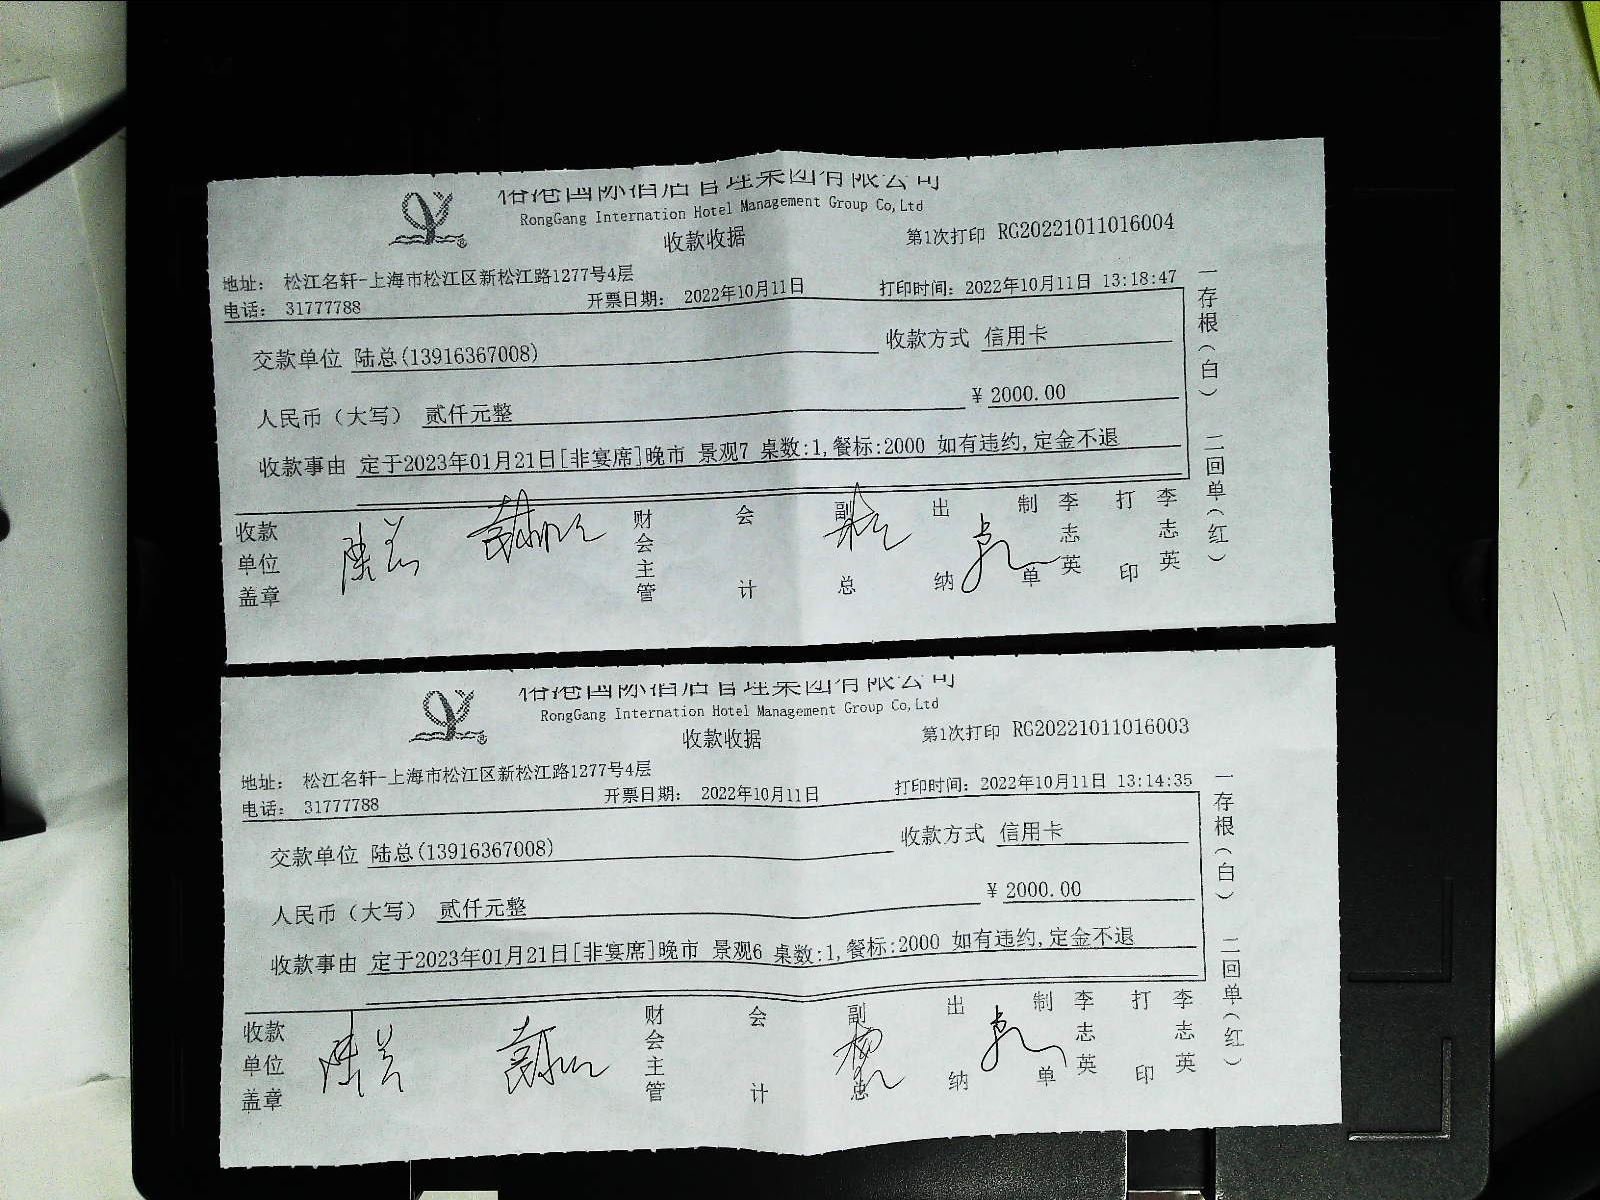 国际酒店管理集团有限公司
RongGang Internation Hotel Management Group Co,Ltd
收款收据
第1次打印 RG20221011016004
地址： 松江名轩-上海市松江区新松江路1277号4层
电话： 31777788
开票日期： 2022年10月11日
打印时间：2022年10月11日 13:18:47
交款单位 陆总(13916367008)
收款方式 信用卡
人民币（大写） 贰仟元整
¥ 2000.00
收款事由 定于2023年01月21日[非宴席]晚市 景观7 桌数:1,餐标:2000 如有违约,定金不退
收款单位盖章
财会主管
会计
副总
出纳
制单
李志英
打印
李志英
一存根（白） 二回单（红）
国际酒店管理集团有限公司
RongGang Internation Hotel Management Group Co,Ltd
收款收据
第1次打印 RG20221011016003
地址： 松江名轩-上海市松江区新松江路1277号4层
电话： 31777788
开票日期： 2022年10月11日
打印时间：2022年10月11日 13:14:35
交款单位 陆总(13916367008)
收款方式 信用卡
人民币（大写） 贰仟元整
¥ 2000.00
收款事由 定于2023年01月21日[非宴席]晚市 景观6 桌数:1,餐标:2000 如有违约,定金不退
收款单位盖章
财会主管
会计
副总
出纳
制单
李志英
打印
李志英
一存根（白） 二回单（红）